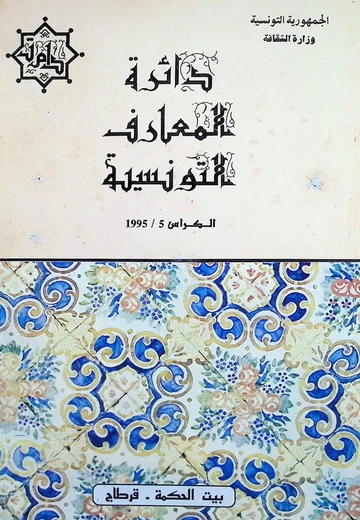 الجمهورية التونسية
وزارة الثقافة
دائرة
المعارف
التونسية
الكراس 5 / 1995
بيت الحكمة - قرطاج